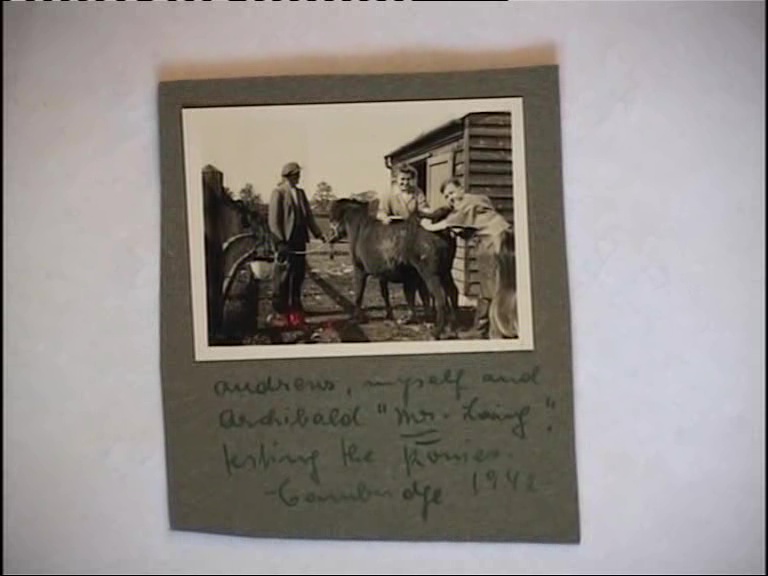 Andrews, myself and
Archibald "Mr. Laing".
testing the ponies.
- Cambridge 1942